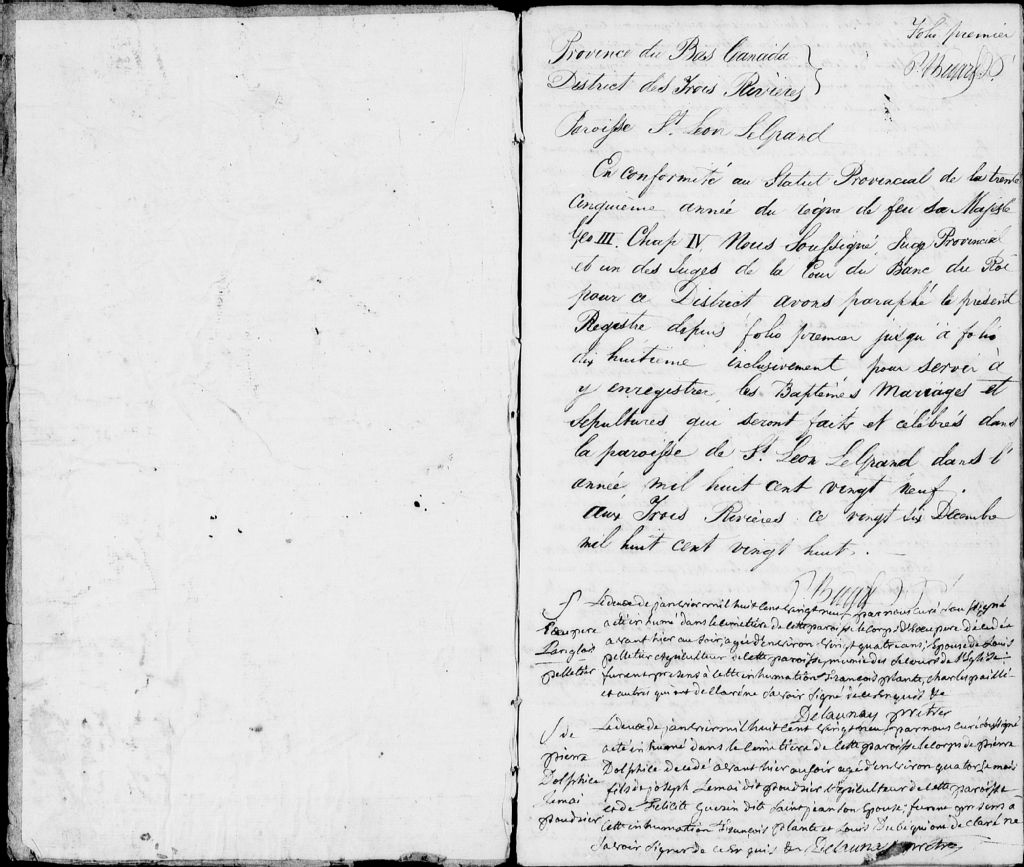 folio premier
Province du Bas Canada
District des Trois Rivières
Paroisse St. Leon LeGrand
En conformité au Statut Provincial de la trente
Cinquième année du règne de feu Sa Majesté
Geo III. Chap IV Nous Soussigné, Juge Provincial
et un des Juges de la Cour du Banc du Roi
pour ce District avons paraphé le présent
Registre depuis folio premier jusqu'à folio
dix huitième inclusivement pour servir à
y enregistrer les Baptêmes Mariages et
Sépultures qui seront faits et célébrés dans
la paroisse de St. Leon LeGrand dans l'
année mil huit cent vingt neuf.
aux Trois Rivières ce vingt six Decembre
mil huit cent vingt huit.
S
pure
Langlois
pelletier
Le deux de janvier mil huit Cent vingt neuf par nous curé soussigné
a été inhumé dans le cimetière de cette paroisse le corps de pure décédée
avant hier au soir, agée d'environ vingt quatre ans, Epouse de Louis
pelletier Agriculteur de cette paroisse, munie des secours de l'Eglise
furent presens à cette inhumation François plante, charles paillé
et autres qui ont déclaré ne savoir signé de ce enquis &c
Delaunay prêtre
S de
pierre
Dolphice
Lemai
poudrier
Le deux de janvier mil huit Cent vingt neuf par nous curé soussigné
a été inhumé dans le cimetière de cette paroisse le corps de pierre
Dolphice décédé avant hier au soir agé d'environ quatorze mois
fils de joseph Lemai dit poudrier Agriculteur de cette paroisse
et de Felicité Guerin dite Saint jean son Epouse; furent presens à
cette inhumation François plante et Louis qui ont déclaré ne
savoir signer de ce enquis &c Delaunay prêtre